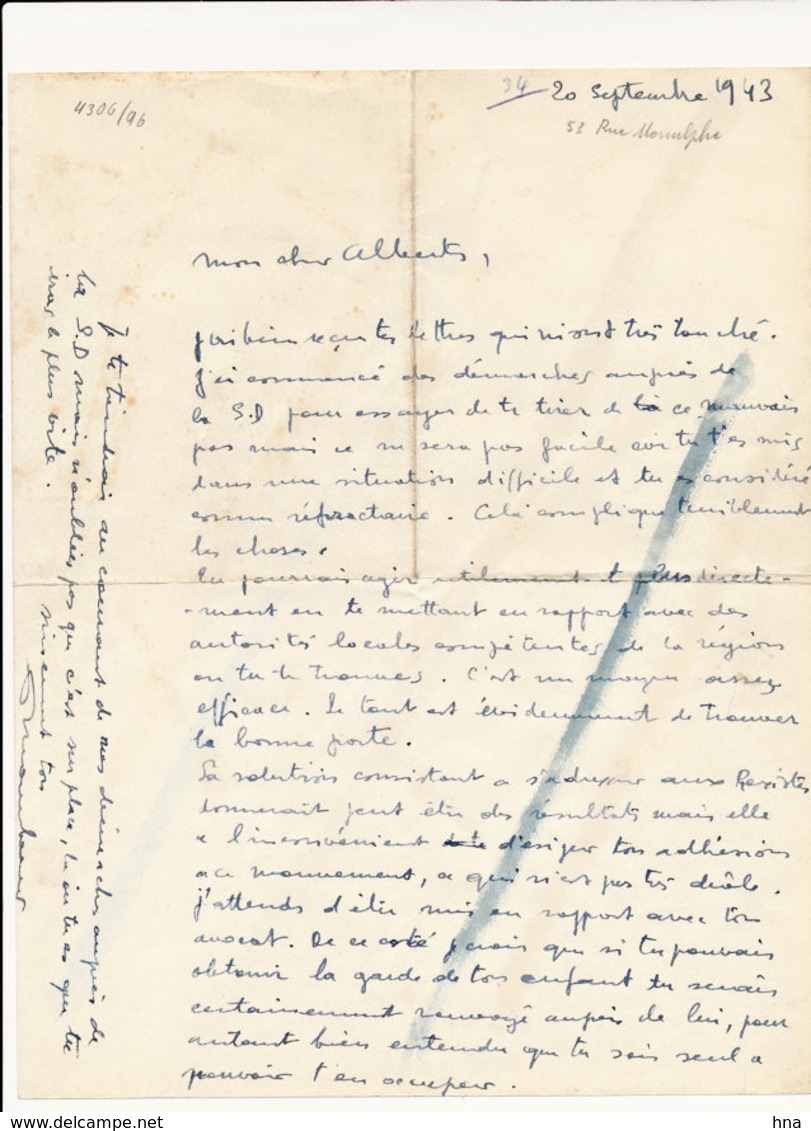 4306/96
34 20 Septembre 1943
53 Rue
Mon cher Alberts,
J'ai bien reçu tes lettres qui m'ont très touché.
J'ai commencé des démarches auprès de
la S.D pour essayer de te tirer de ce mauvais
pas mais ce ne sera pas facile car tu t'es mis
dans une situation difficile et tu es considéré
comme réfractaire. Celà complique terriblement
les choses.
On pourrait agir utilement et plus directe-
-ment en te mettant en rapport avec des
autorités locales compétentes de la région
ou tu te trouves. C'est un moyen assez
efficace. Le tout est évidemment de trouver
la bonne porte.
La solution consistant a s'adresser aux Rexistes
donnerait peut être des résultats mais elle
a l'inconvénient d'exiger ton adhésion
a ce mouvement, ce qui n'est pas très drôle.
J'attends d'être mis en rapport avec ton
avocat. De ce coté je crois que si tu pouvais
obtenir la garde de ton enfant tu serais
certainement renvoyé auprès de lui, pour
autant bien entendu que tu sois seul a
pouvoir t'en occuper.
Je te tiendrais au courant de mes démarches auprès de
la S.D mais n'oublies pas que c'est sur place, là ou tu es que tu
iras le plus vite.
sincèrement ton
hna